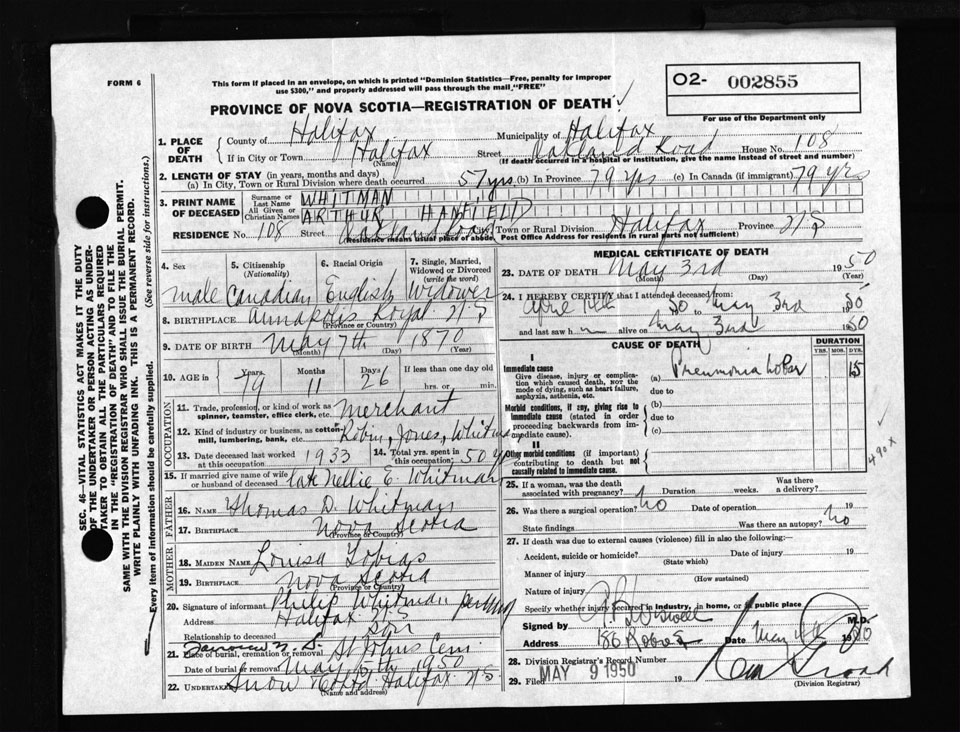 FORM 6
This form if placed in an envelope, on which is printed "Dominion Statistics—Free, penalty for improper
use $300," and properly addressed will pass through the mail "FREE"
PROVINCE OF NOVA SCOTIA—REGISTRATION OF DEATH
O2- 002855
For use of the Department only
1. PLACE OF DEATH
County of Halifax Municipality of Halifax
If in City or Town Halifax Street Oakland Road House No. 108
(Name) (If death occurred in a hospital or institution, give the name instead of street and number)
2. LENGTH OF STAY (in years, months and days)
(a) In City, Town or Rural Division where death occurred 57 yrs. (b) In Province 79 yrs (c) In Canada (if immigrant) 79 yrs
3. PRINT NAME OF DECEASED
Surname or Last Name WHITMAN
All Given or Christian Names ARTHUR HANFIELD
RESIDENCE No. 108 Oakland Road City, Town or Rural Division Halifax Province N S
(Residence means usual place of abode. Post Office Address for residents in rural parts not sufficient)
4. Sex
5. Citizenship (Nationality)
6. Racial Origin
7. Single, Married, Widowed or Divorced (write the word)
male Canadian English Widower
8. BIRTHPLACE Annapolis Royal N S
(Province or Country)
9. DATE OF BIRTH May 7th 1870
(Month) (Day) (Year)
10. AGE in Years Months Days If less than one day old
79 11 26 hrs. or min.
OCCUPATION
11. Trade, profession, or kind of work as spinner, teamster, office clerk, etc. Merchant
12. Kind of industry or business, as cotton-mill, lumbering, bank, etc. Robin, Jones, Whitman
13. Date deceased last worked at this occupation 1933
14. Total yrs. spent in this occupation: 50 y
15. If married give name of wife or husband of deceased late Nellie E. Whitman
FATHER
16. NAME Thomas D. Whitman
17. BIRTHPLACE Nova Scotia
(Province or Country)
MOTHER
18. MAIDEN NAME Louisa Tobias
19. BIRTHPLACE Nova Scotia
(Province or Country)
20. Signature of informant Philip Whitman
Address Halifax N S
Relationship to deceased Son
21. Place of burial, cremation or removal St Johns Cem
Date of burial or removal May 6th 1950
22. UNDERTAKER Snow & Co Ltd Halifax N S
(Name and address)
MEDICAL CERTIFICATE OF DEATH
23. DATE OF DEATH May 3rd 1950
(Month) (Day) (Year)
24. I HEREBY CERTIFY that I attended deceased from:
April 50 to May 3rd 1950
and last saw h m alive on May 3rd 1950
CAUSE OF DEATH
DURATION
YRS. MOS. DYS.
I
Immediate cause (a) Pneumonia Lobar 15
Give disease, injury or complication which caused death, NOT the mode of dying, such as heart failure, asphyxia, asthenia, etc.
due to
Morbid conditions, if any, giving rise to immediate cause (stated in order proceeding backwards from immediate cause).
(b)
due to
(c)
II
Other morbid conditions (if important) contributing to death but not causally related to immediate cause.
490 x
25. If a woman, was the death associated with pregnancy? Duration weeks. Was there a delivery?
26. Was there a surgical operation? no Date of operation 19
State findings Was there an autopsy? no
27. If death was due to external causes (violence) fill in also the following:—
Accident, suicide or homicide? Date of injury 19
(State which)
Manner of injury
(How sustained)
Nature of injury
Specify whether injury occurred in industry, in home, or in public place
Signed by M.D.
Address Date May 1950
28. Division Registrar's Record Number
29. Filed MAY 9 1950 19
(Division Registrar)
SEC. 46—VITAL STATISTICS ACT MAKES IT THE DUTY
OF THE UNDERTAKER OR PERSON ACTING AS UNDERTAKER
TO OBTAIN ALL THE PARTICULARS REQUIRED
IN THE "REGISTRATION OF DEATH" AND TO FILE THE
SAME WITH THE DIVISION REGISTRAR WHO SHALL ISSUE THE BURIAL PERMIT.
WRITE PLAINLY WITH UNFADING INK. THIS IS A PERMANENT RECORD.
Every item of information should be carefully supplied. (See reverse side for instructions.)